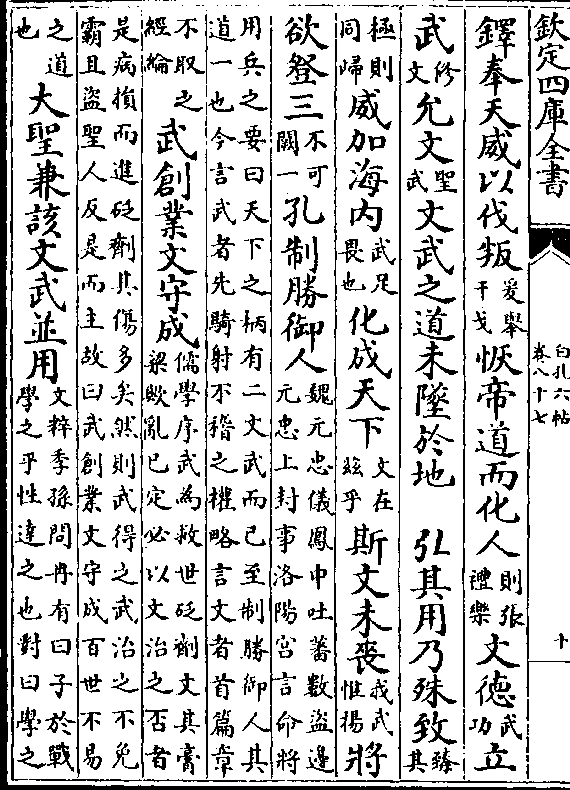 欽定四庫全書
白孔六帖
卷八十七
十
鐸奉天威以伐叛爰舉干戈恢帝道而化人則張禮樂文德武功立
武修文允文聖武文武之道未墜於地　弘其用乃殊致臻其
極則同歸威加海内武足畏也化成天下文在兹乎斯文未喪我武惟揚將
欲登三不可闕一孔制勝御人魏元忠儀鳳中吐蕃數盜邊元忠上封事洛陽宮言命將
用兵之要曰天下之柄有二文武而已至制勝御人其
道一也今言武者先騎射不稽之權略言文者首篇章
不取之經綸武創業文守成儒學序武為救世砭劑文其膏梁歟亂已定必以文治之否者
是病損而進砭劑其傷多矣然則武得之武治之不免
霸且盜聖人反是而主故曰武創業文守成百世不易
之道也大聖兼該文武並用文粹季孫問冉有曰子於戰學之乎性達之也對曰學之